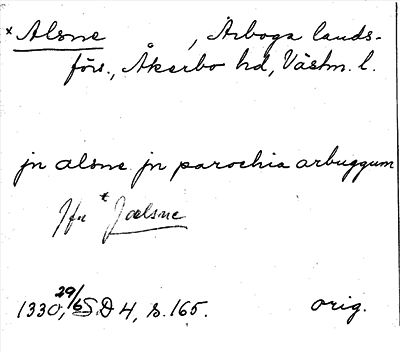 *Alsne , Arboga lands-
förs., Åkerbo hd, Västm. l.
jn alsne jn parochia arbuggum
Jfr *Jælsne
1330, 29/6 SD 4, s. 165. orig.